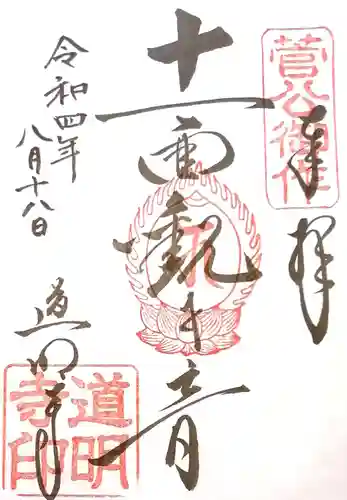 奉拝
菅公御作
十一面観世音
令和四年
八月十八日
道明寺
道明
寺印